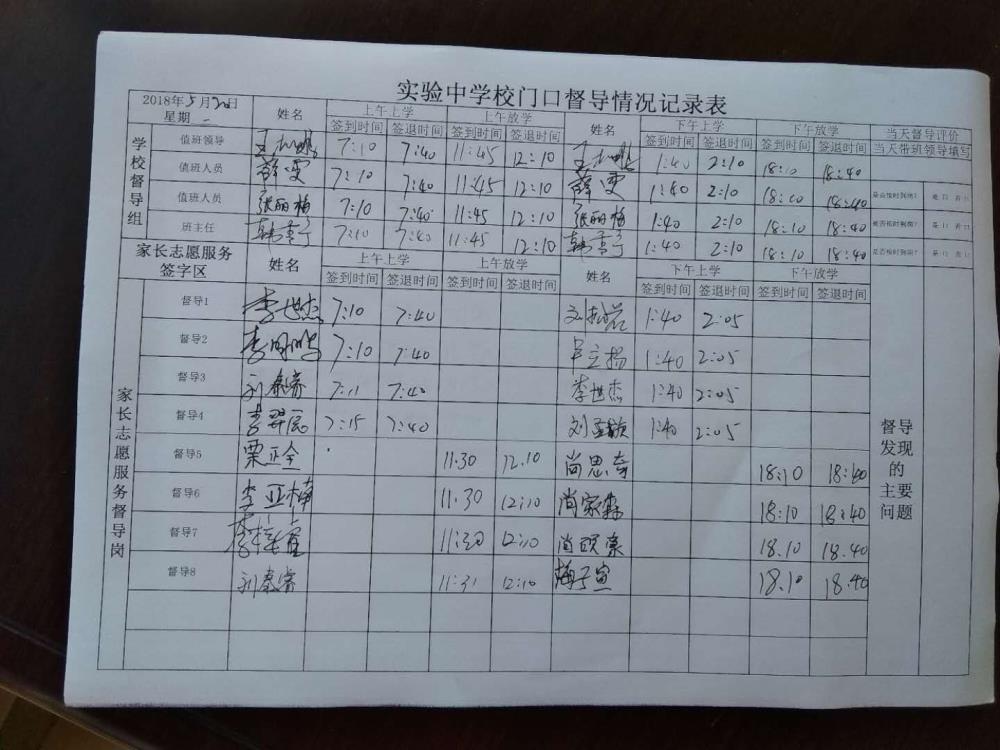 实验中学校门口督导情况记录表
2018年5月20日 星期一 姓名 上午上学 上午放学 姓名 下午上学 下午放学 当天督导评价
签到时间 签退时间 签到时间 签退时间 签到时间 签退时间 签到时间 签退时间 当天带班领导填写
学校督导组
值班领导 7:10 7:40 11:45 12:10 1:40 2:10 18:10 18:40
值班人员 薛雯 7:10 7:40 11:45 12:10 薛雯 1:40 2:10 18:10 18:40 是否按时到岗? 是 口 否 口
值班人员 张丽梅 7:10 7:40 11:45 12:10 张丽梅 1:40 2:10 18:10 18:40 是否按时到岗? 是 口 否 口
班主任 7:10 7:40 11:45 12:10 1:40 2:10 18:10 18:40 是否按时到岗? 是 口 否 口
家长志愿服务签字区 姓名 上午上学 上午放学 姓名 下午上学 下午放学
签到时间 签退时间 签到时间 签退时间 签到时间 签退时间 签到时间 签退时间
家长志愿服务督导岗
督导1 李世杰 7:10 7:40 1:40 2:05
督导2 7:10 7:40 1:40 2:05
督导3 刘泰睿 7:11 7:40 李世杰 1:40 2:05
督导4 7:15 7:40 1:40 2:05
督导5 栗正全 11:30 12.10 尚思奇 18:10 18:40
督导6 李亚楠 11:30 12:10 尚家森 18:10 18:40
督导7 11:30 12:10 尚硕豪 18.10 18.40
督导8 刘泰睿 11:31 12:10 梅子宣 18.10 18.40
督导发现的主要问题